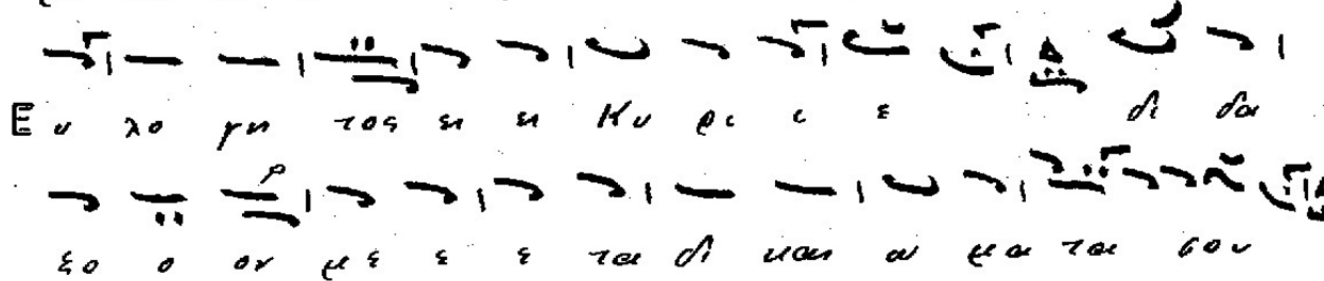 Ευ λο γη τος ει ει Κυ ρι ι ε δι δα
ξο ο ον με ε ε ε ται δι και ω μα τα σου